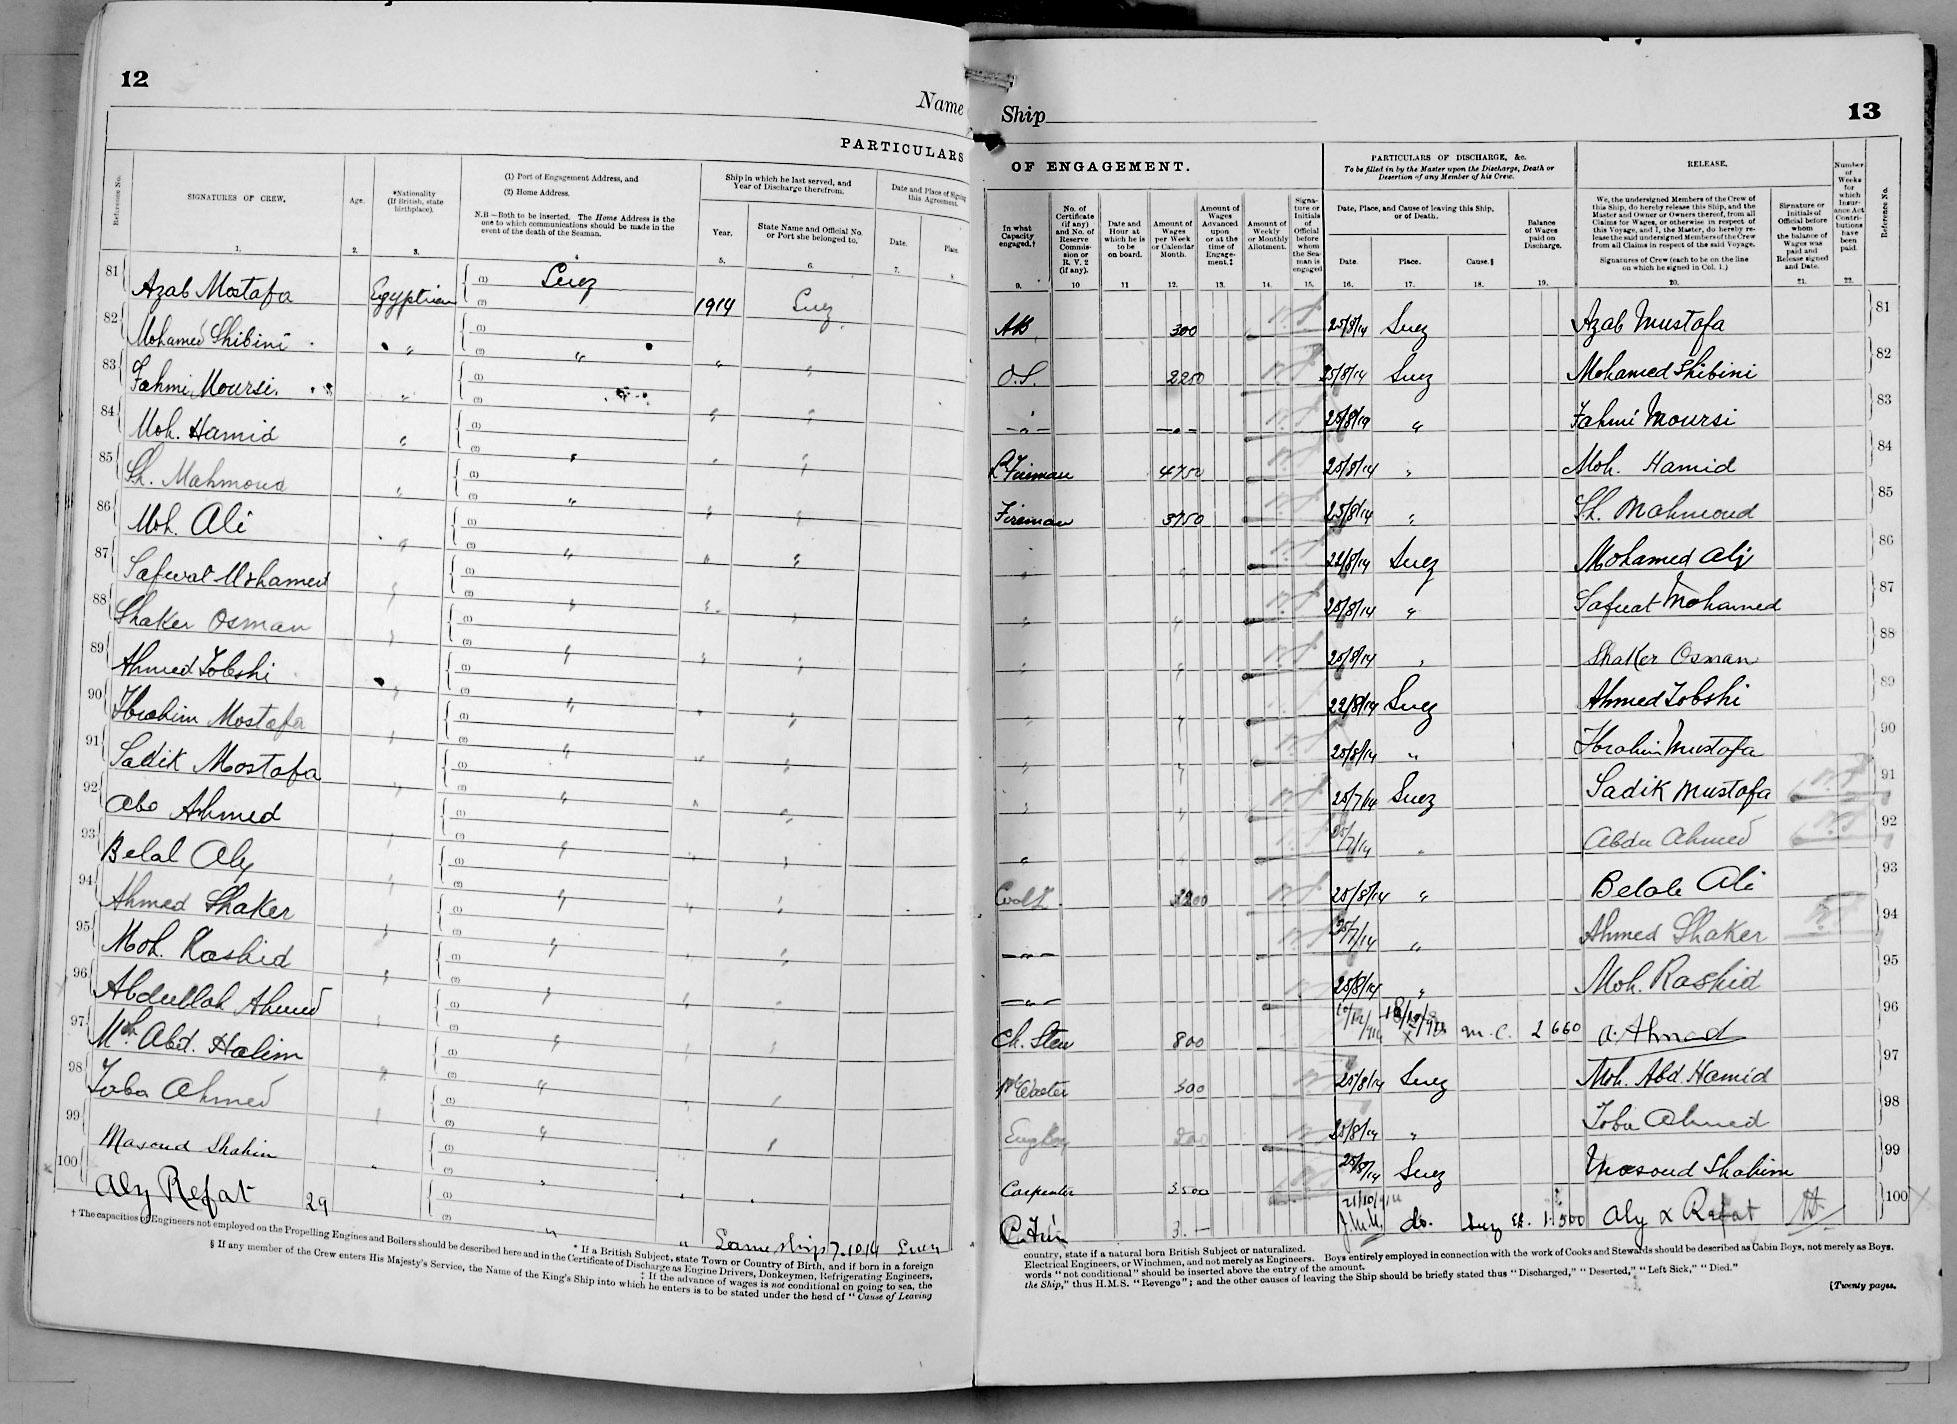 12
Name
PARTICULARS
Reference No.
SIGNATURES OF CREW.
Age.
*Nationality
(If British, state
birthplace).
(1) Port of Engagement Address, and
(2) Home Address.
N.B.—Both to be inserted. The Home Address is the
one to which communications should be made in the
event of the death of the Seaman.
Ship in which he last served, and
Year of Discharge therefrom.
Year.
State Name and Official No.
or Port she belonged to.
Date and Place of Signing
this Agreement.
Date.
Place.
1. 2. 3. 4 5. 6. 7. 8.
81 Azab Mostafa Egyptian (1) Suez (2) 1914 Suez
82 Mohamed Shibini " (1) (2) " " "
83 Fahmi Moursi. " (1) (2) " "
84 Moh. Hamid " (1) (2) " " "
85 Sh. Mahmoud " (1) (2) " " "
86 Moh. Ali " (1) (2) " " "
87 Safwat Mohamed " (1) (2) " " "
88 Shaker Osman " (1) (2) " " "
89 Ahmed Tobshi " (1) (2) " " "
90 Ibrahim Mostafa " (1) (2) " " "
91 Sadik Mostafa " (1) (2) " " "
92 Abo Ahmed " (1) (2) " " "
93 Belal Aly " (1) (2) " " "
94 Ahmed Shaker " (1) (2) " " "
95 Moh. Rashid " (1) (2) " " "
96 Abdullah Ahmed " (1) (2) " " "
97 Mh. Abd. Halim " (1) (2) " "
98 Toba Ahmed " (1) (2) " "
99 Masoud Shahin " (1) (2) " " "
100 Aly Refat 29 (1) (2) " " Same ship 7.10.14 Suez
† The capacities of Engineers not employed on the Propelling Engines and Boilers should be described here and in the Certificate of Discharge as Engine Drivers, Donkeymen, Refrigerating Engineers,
* If a British Subject, state Town or Country of Birth, and if born in a foreign
‡ If the advance of wages is not conditional on going to sea, the
§ If any member of the Crew enters His Majesty's Service, the Name of the King's Ship into which he enters is to be stated under the head of "Cause of Leaving
Ship
13
OF ENGAGEMENT.
PARTICULARS OF DISCHARGE, &c.
To be filled in by the Master upon the Discharge, Death or
Desertion of any Member of his Crew.
RELEASE.
In what
Capacity
engaged.†
No. of
Certificate
(if any)
and No. of
Reserve
Commis-
sion or
R. V. 2
(if any).
Date and
Hour at
which he is
to be
on board.
Amount of
Wages
per Week
or Calendar
Month.
Amount of
Wages
Advanced
upon
or at the
time of
Engage-
ment.‡
Amount of
Weekly
or Monthly
Allotment.
Signa-
ture or
Initials
of
Official
before
whom
the Sea-
man is
engaged
Date, Place, and Cause of leaving this Ship,
or of Death.
Date.
Place.
Cause.§
Balance
of Wages
paid on
Discharge.
We, the undersigned Members of the Crew of
this Ship, do hereby release this Ship, and the
Master and Owner or Owners thereof, from all
Claims for Wages, or otherwise in respect of
this Voyage, and I, the Master, do hereby re-
lease the said undersigned Members of the Crew
from all Claims in respect of the said Voyage.
Signatures of Crew (each to be on the line
on which he signed in Col. 1.)
Signature or
Initials of
Official before
whom
the balance of
Wages was
paid and
Release signed
and Date.
Number
of
Weeks
for
which
Insur-
ance Act
Contri-
butions
have
been
paid.
Reference No.
9. 10 11 12. 13. 14. 15. 16. 17. 18. 19. 20. 21. 22.
AB 300 25/8/14 Suez Azab Mustafa 81
O.S. 2250 25/8/14 Suez Mohamed Shibini 82
—"— —"— 25/8/14 " Fahmi Moursi 83
L Fireman 4750 25/8/14 " Moh. Hamid 84
Fireman 3750 25/8/14 " Sh. Mahmoud 85
" " 22/8/14 Suez Mohamed Aly 86
" " 25/8/14 " Safuat Mohamed 87
" " 25/8/14 " Shaker Osman 88
" " 22/8/14 Suez Ahmed Tobshi 89
" " 25/8/14 " Ibrahim Mustafa 90
" " 25/7/14 Suez Sadik Mustafa 91
" " 25/7/14 " Abdu Ahmed 92
3200 25/8/14 " Belale Ali 93
—"— 25/7/14 " Ahmed Shaker 94
—"— 25/8/14 " Moh. Rashid 95
Ch. Stew 800 m.c. 2 660 A. Ahmad 96
500 25/8/14 Suez Moh. Abd. Hamid 97
25/8/14 " Toba Ahmed 98
Carpenter 3500 25/8/14 Suez Masoud Shahim 99
3.— 21/10/914 do. 1 500 Aly x Refat 100
country, state if a natural born British Subject or naturalized.
Electrical Engineers, or Winchmen, and not merely as Engineers. Boys entirely employed in connection with the work of Cooks and Stewards should be described as Cabin Boys, not merely as Boys.
words "not conditional" should be inserted above the entry of the amount.
the Ship," thus H.M.S. "Revenge"; and the other causes of leaving the Ship should be briefly stated thus "Discharged," "Deserted," "Left Sick," "Died."
[Twenty pages.